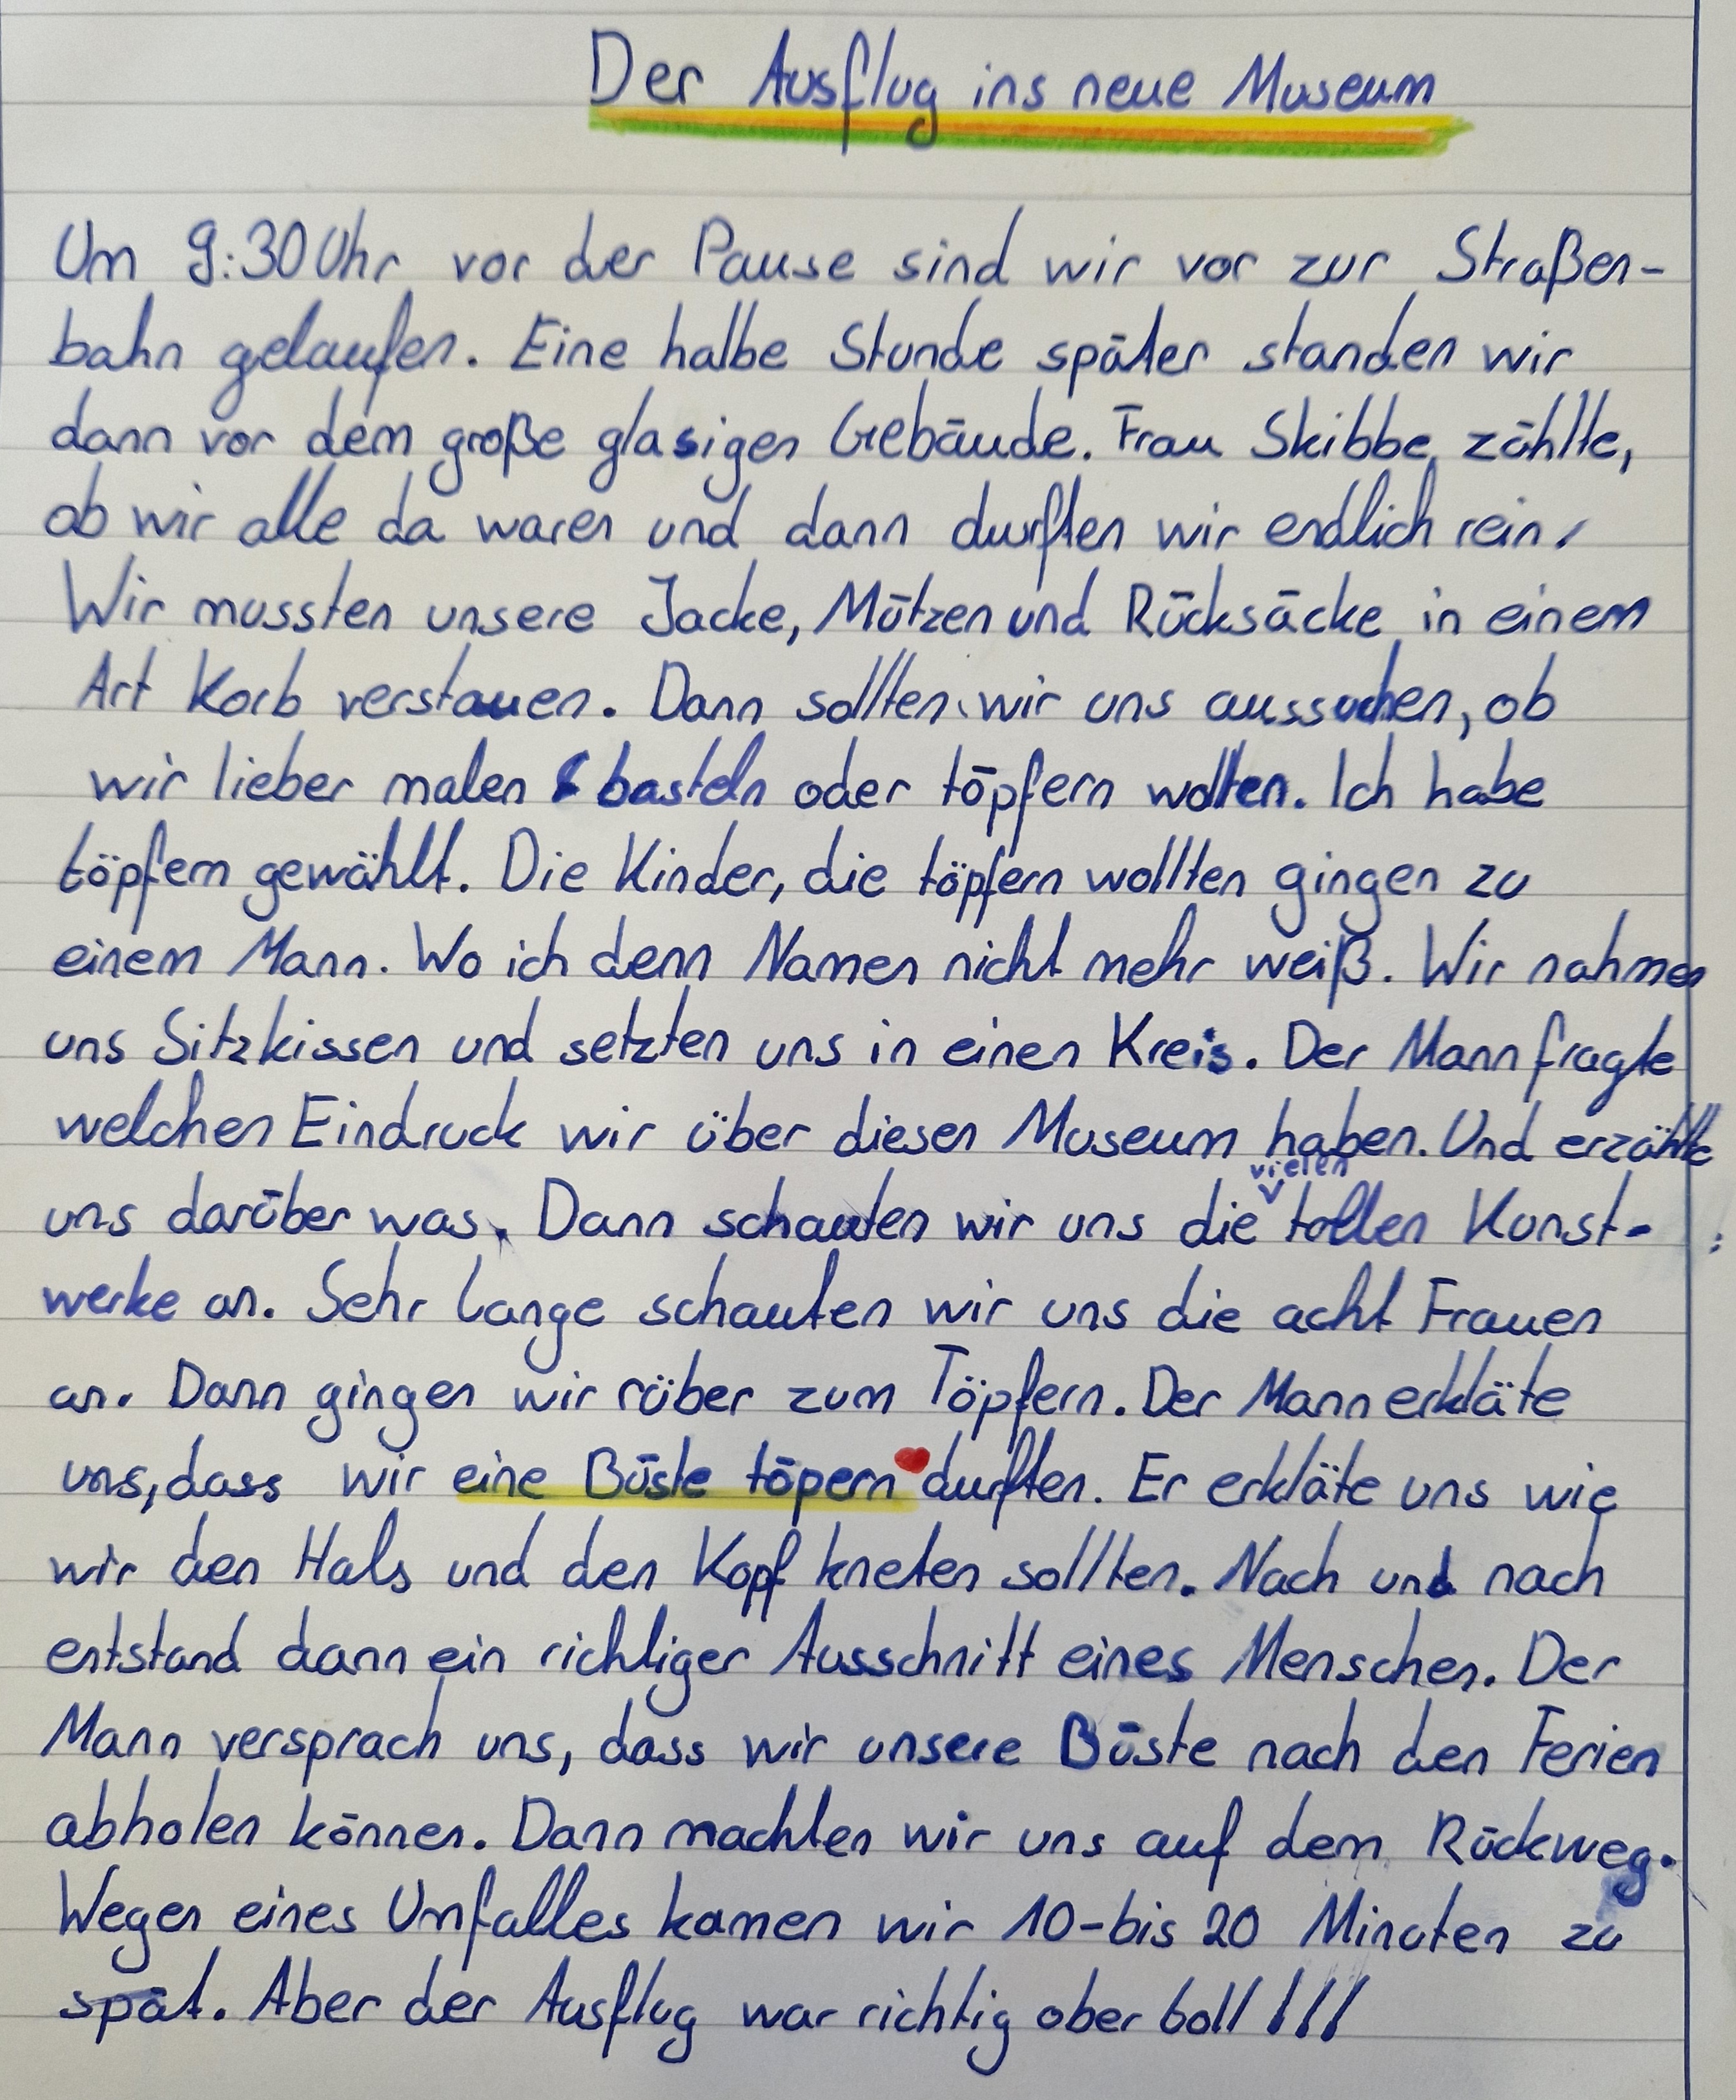 Der Ausflug ins neue Museum
Um 9:30 Uhr vor der Pause sind wir vor zur Straßen-
bahn gelaufen. Eine halbe Stunde später standen wir
dann vor dem große glasigen Gebäude. Frau Skibbe zählte,
ob wir alle da waren und dann durften wir endlich rein.
Wir mussten unsere Jacke, Mützen und Rücksäcke in einem
Art Korb verstauen. Dann sollten wir uns aussuchen, ob
wir lieber malen & basteln oder töpfern wollten. Ich habe
töpfern gewählt. Die Kinder, die töpfern wollten gingen zu
einem Mann. Wo ich denn Namen nicht mehr weiß. Wir nahmen
uns Sitzkissen und setzten uns in einen Kreis. Der Mann fragte
welchen Eindruck wir über diesen Museum haben. Und erzählte
uns darüber was. Dann schauten wir uns die vielen tollen Kunst-
werke an. Sehr lange schauten wir uns die acht Frauen
an. Dann gingen wir rüber zum Töpfern. Der Mann erkläte
uns, dass wir eine Büste töpern durften. Er erkläte uns wie
wir den Hals und den Kopf kneten sollten. Nach und nach
entstand dann ein richtiger Ausschnitt eines Menschen. Der
Mann versprach uns, dass wir unsere Büste nach den Ferien
abholen können. Dann machten wir uns auf dem Rückweg.
Wegen eines Unfalles kamen wir 10-bis 20 Minuten zu
spät. Aber der Ausflug war richtig ober boll!!!